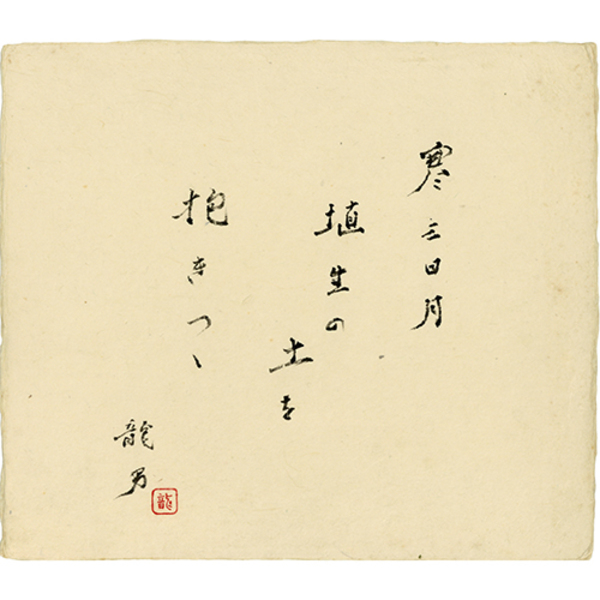 寒三日月
埴生の
土を
抱きつゝ
龍男
龍